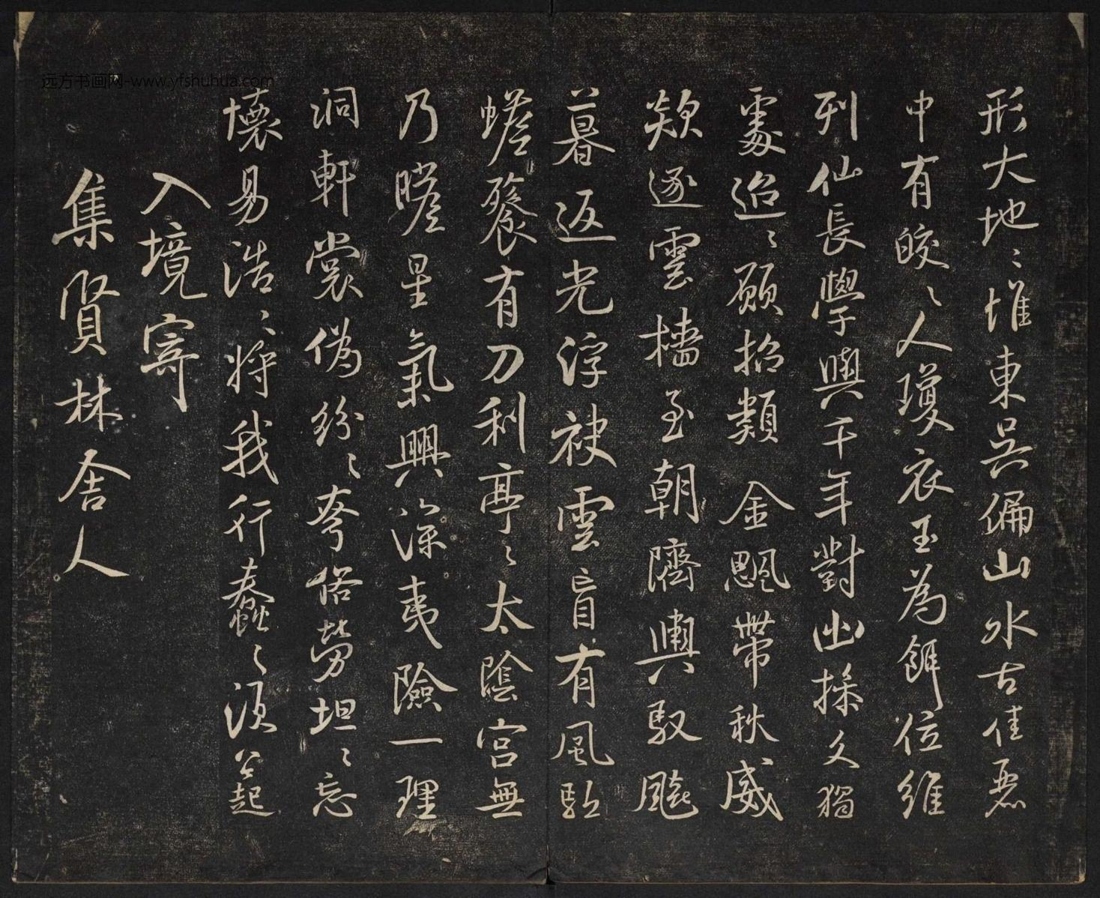 形大地〻惟東吳偏山水古佳麗
中有皎〻人瓊衣玉為餌位維
列仙長學與千年對幽操久獨
處迢〻願招類金飈帶秋威
歘逐雲檣至朝隮輿馭飈
暮返光浮袂雲盲有風駈
蟾餮有刀利亭〻太陰宮無
乃瞻星氣興深夷險一理
洞軒裳偽紛〻夸俗勞坦〻忘
懷易浩〻將我行蠢〻須公起
入境寄
集賢林舍人
远方书画网-www.yfshuhua.com